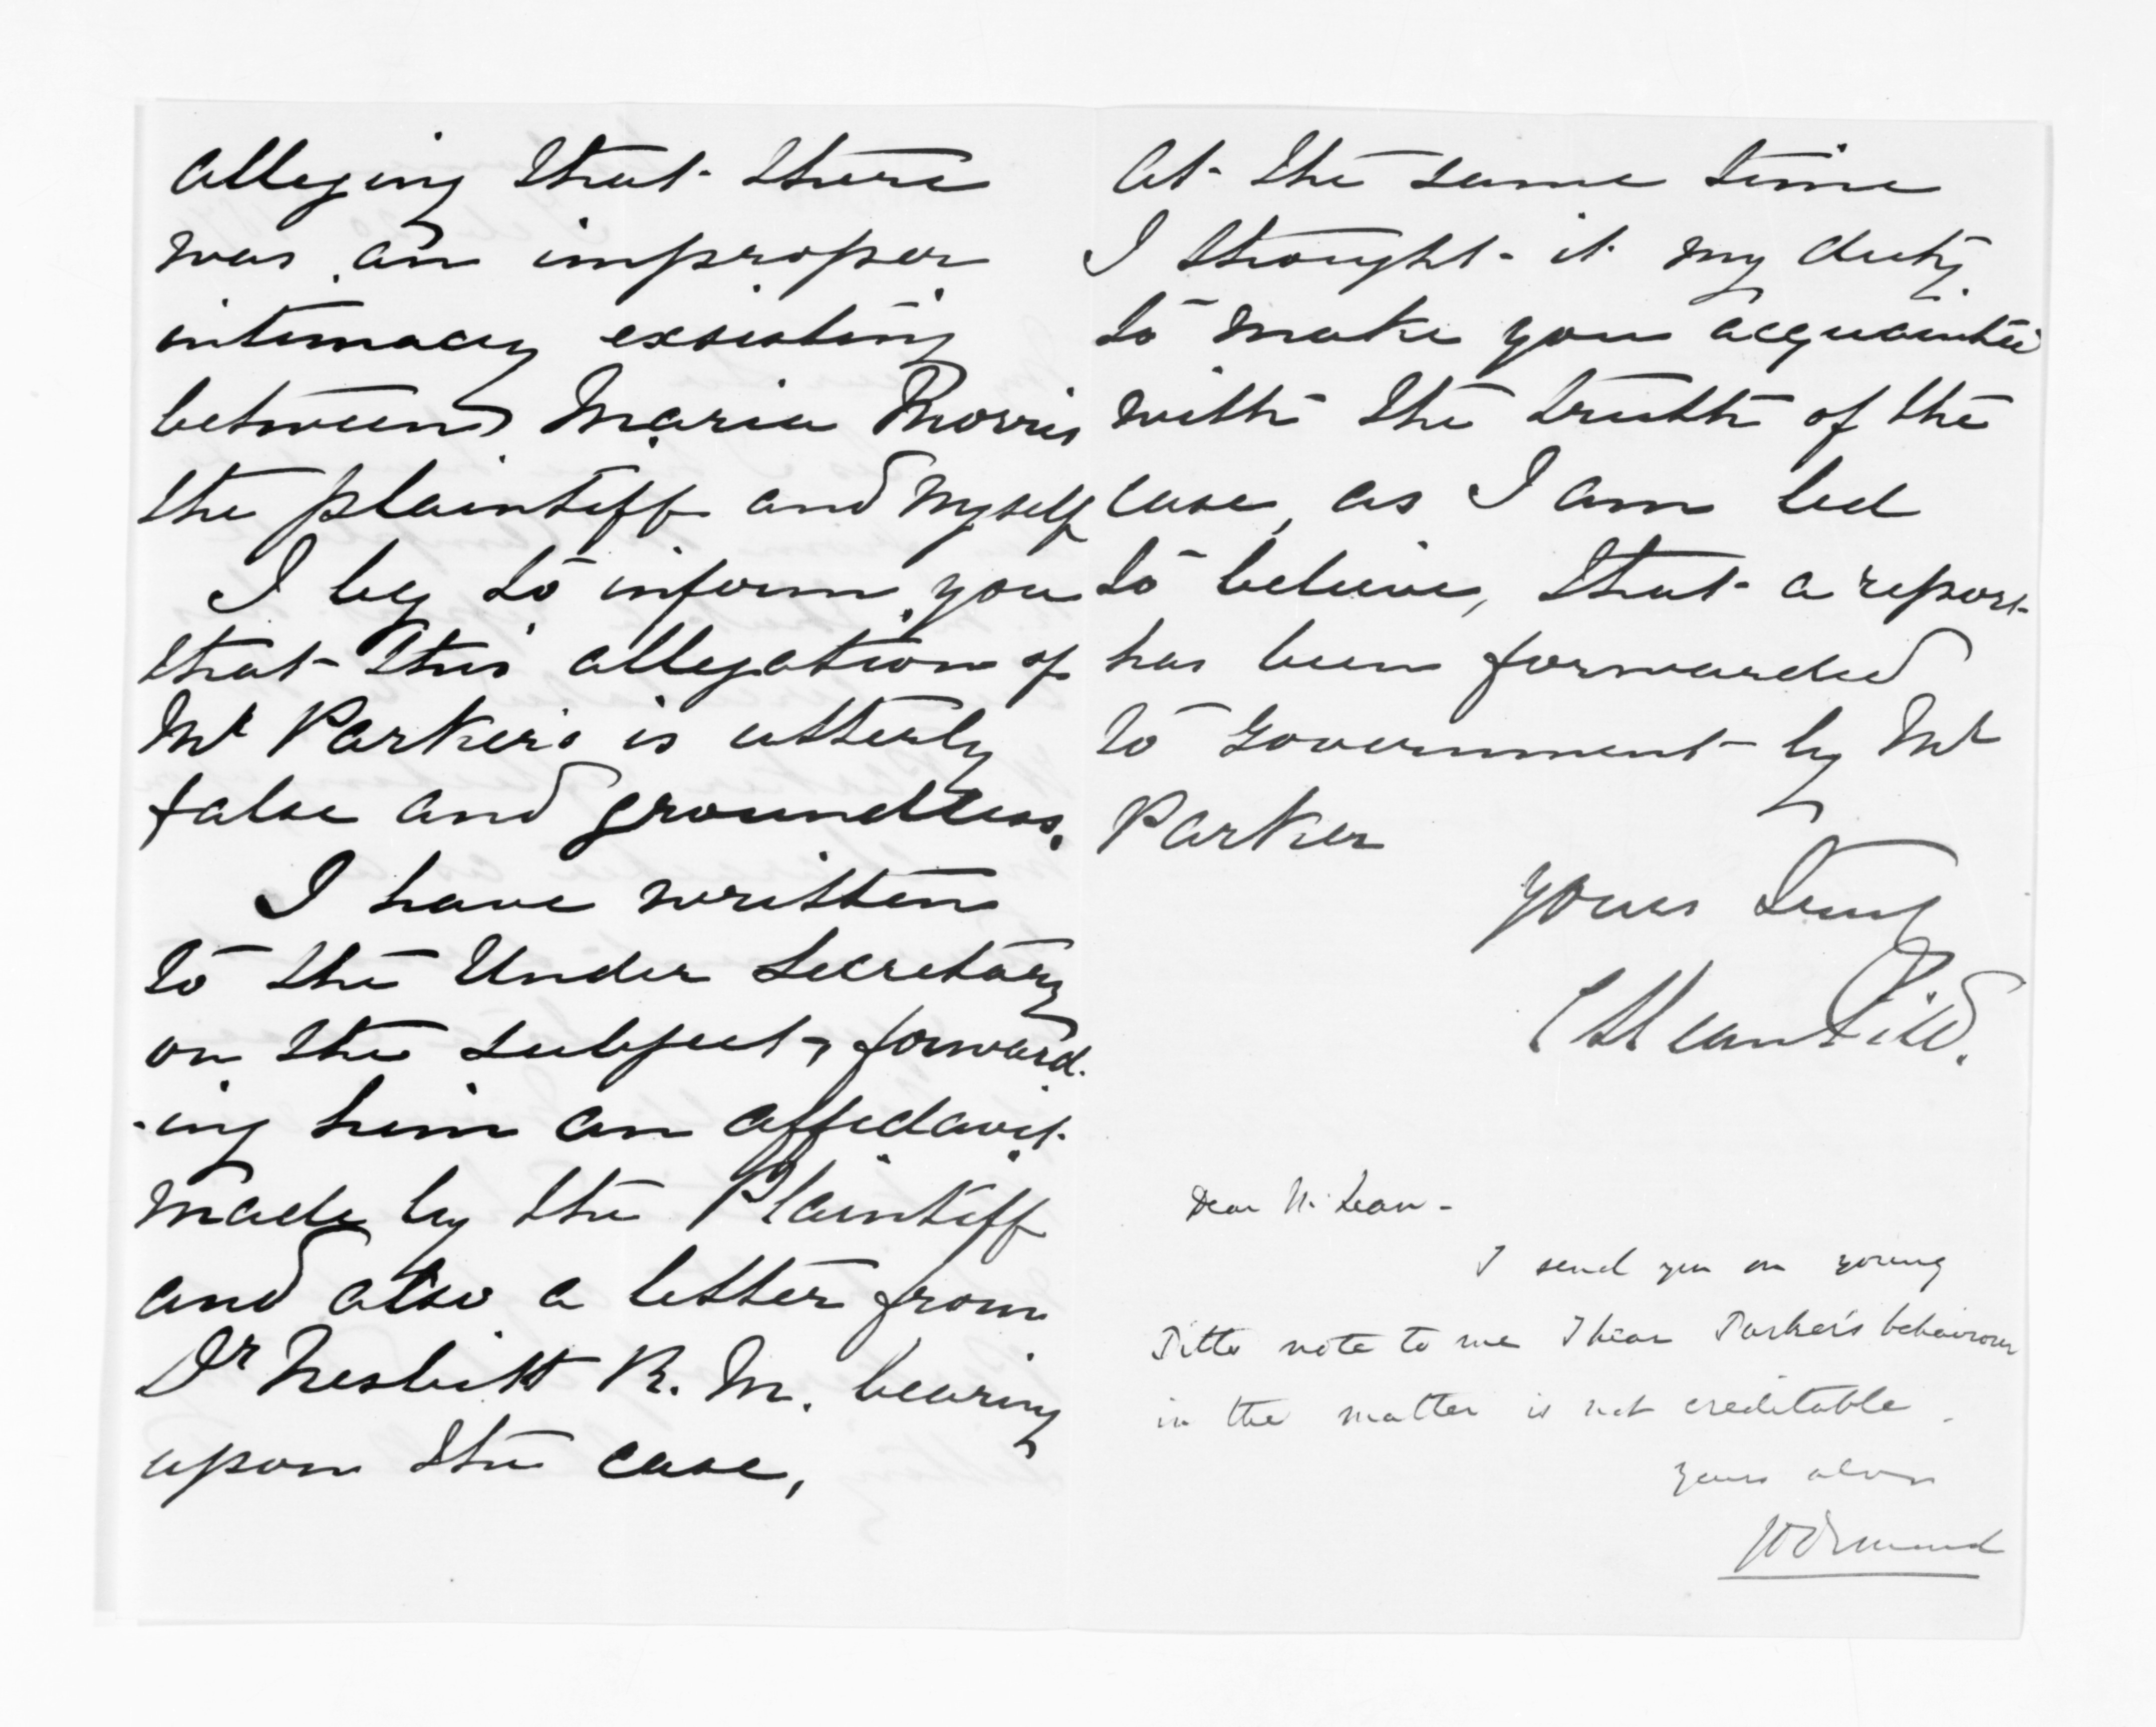 alleging that there
was an improper
intimacy exsisting
between Maria Morris
the plaintiff and myself
I beg to inform you
that this allegation of
Mr Parkers is utterly
false and groundless.
I have written
to the Under Secretary
on the subject, forward-
-ing him an affidavit
made by the Plaintiff
and also a letter from
Dr Nesbitt R. M. bearing
upon the case,
At the same time
I thought it my duty
to make you acquainted
with the truth of the
case, as I am led
to believe, that a report
has been forwarded
to Government by Mr
Parker
yours truly
Dear McLean -
I send you on young
note to me I hear Parker's behaviour
in the matter is not creditable.
yours
JDOrmond